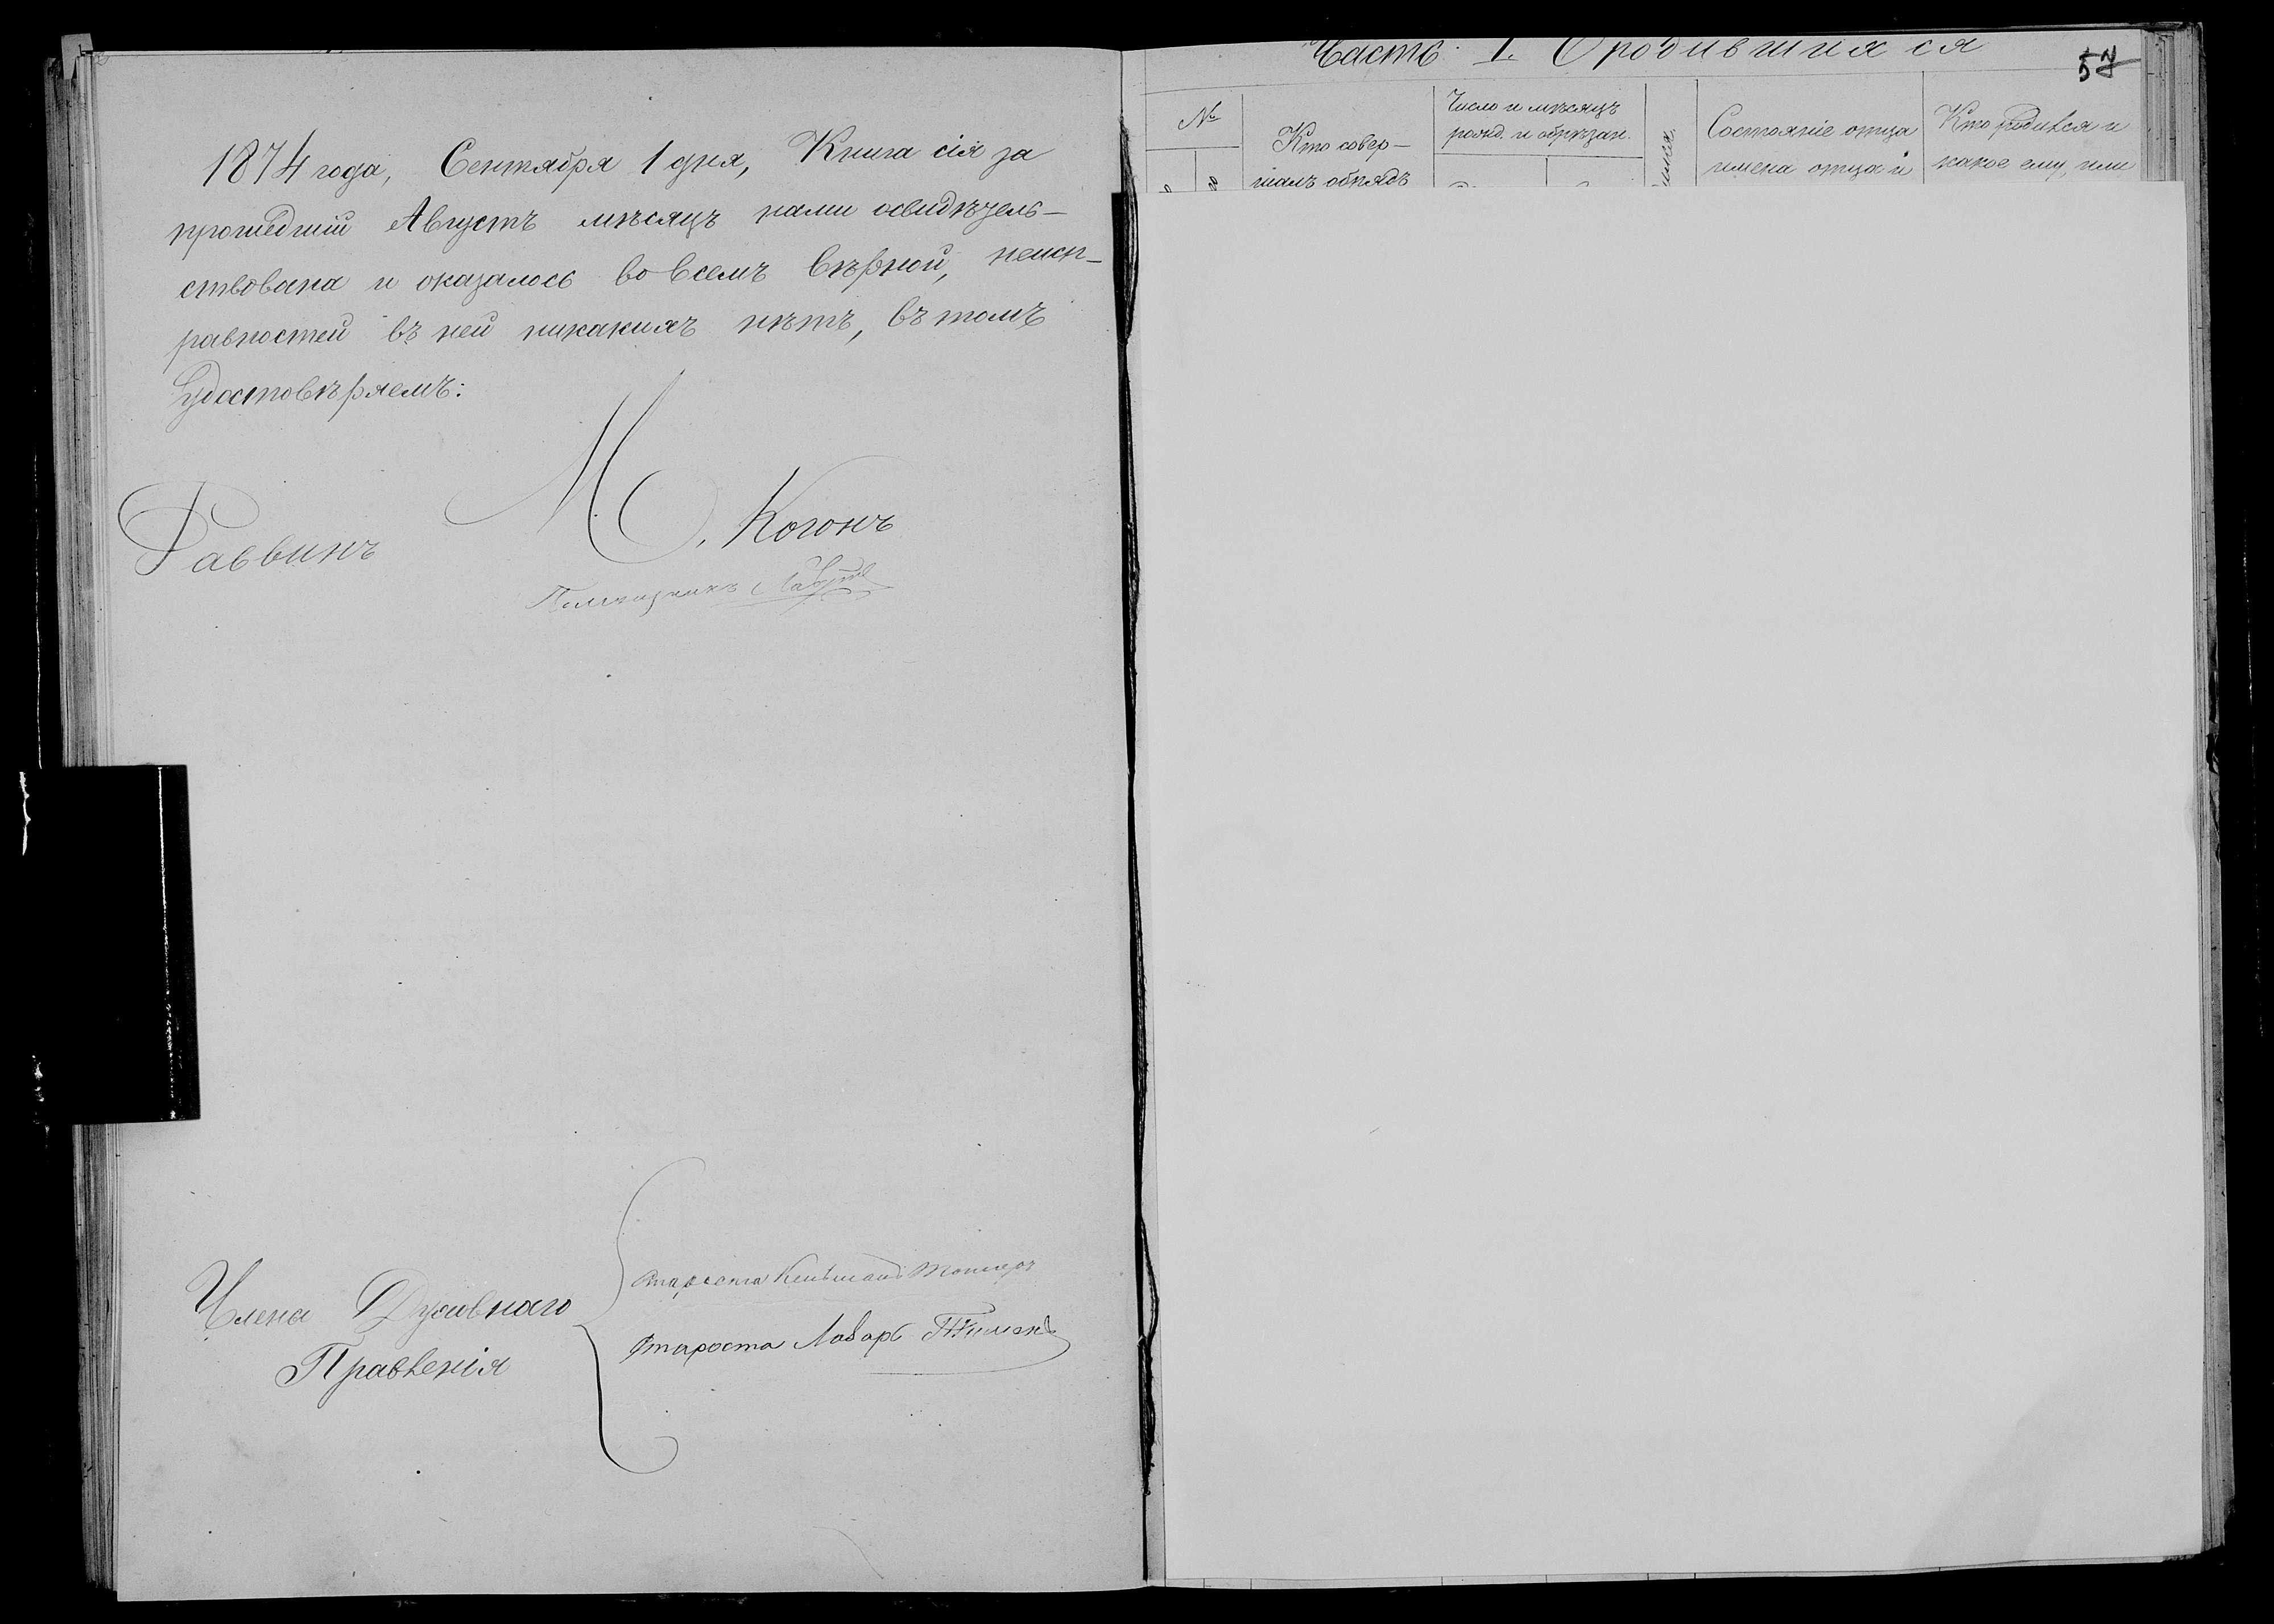 1874 года, Сентября 1 дня, Книга сія за
прошедшій Августъ мѣсяцъ нами освидѣтель-
ствована и оказалось во всемъ вѣрной, неисп-
равностей въ ней никакихъ нѣтъ, въ томъ
удостовѣряемъ:
Раввинъ М. Когонъ
Члена Духовнаго
Правленія
Староста
Староста Лазарь
Часть I. О родившихся
57
№
Кто совер-
шалъ обрядъ
Число и мѣсяцъ
рожд. и обрѣзан.
Состояніе отца
имена отца и
Кто родился и
какое ему, или